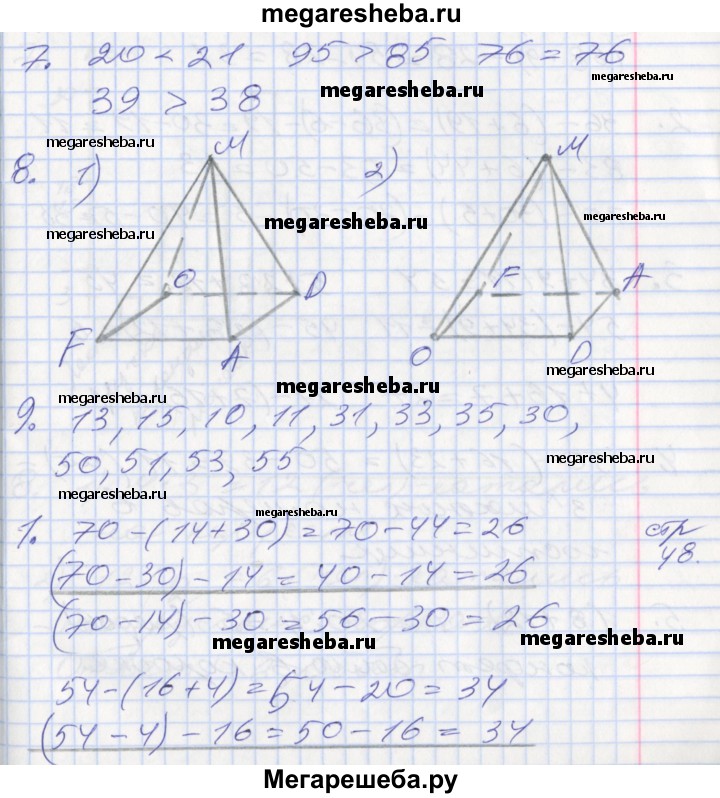 megaresheba.ru
7. 20 < 21 95 > 85 76 = 76
megaresheba.ru
39 > 38 megaresheba.ru
megaresheba.ru megaresheba.ru
8. 1) M 2) M
megaresheba.ru megaresheba.ru megaresheba.ru
O D F A
F A O D
megaresheba.ru megaresheba.ru megaresheba.ru
9. 13, 15, 10, 11, 31, 33, 35, 30,
50, 51, 53, 55 megaresheba.ru
megaresheba.ru megaresheba.ru
1. 70-(14+30)=70-44=26 стр 48.
(70-30)-14=40-14=26
megaresheba.ru
(70-14)-30=56-30=26
megaresheba.ru megaresheba.ru
54-(16+4)=54-20=34
(54-4)-16=50-16=34
Мегарешеба.ру